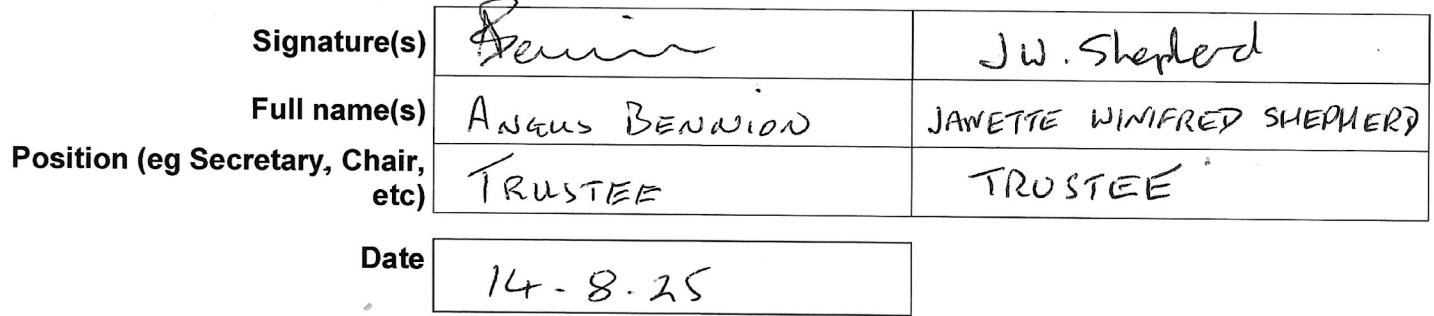 Signature(s) Bennion J W. Shepherd
Full name(s) ANGUS BENNION JANETTE WINIFRED SHEPHERD
Position (eg Secretary, Chair, etc) TRUSTEE TRUSTEE
Date 14-8.25